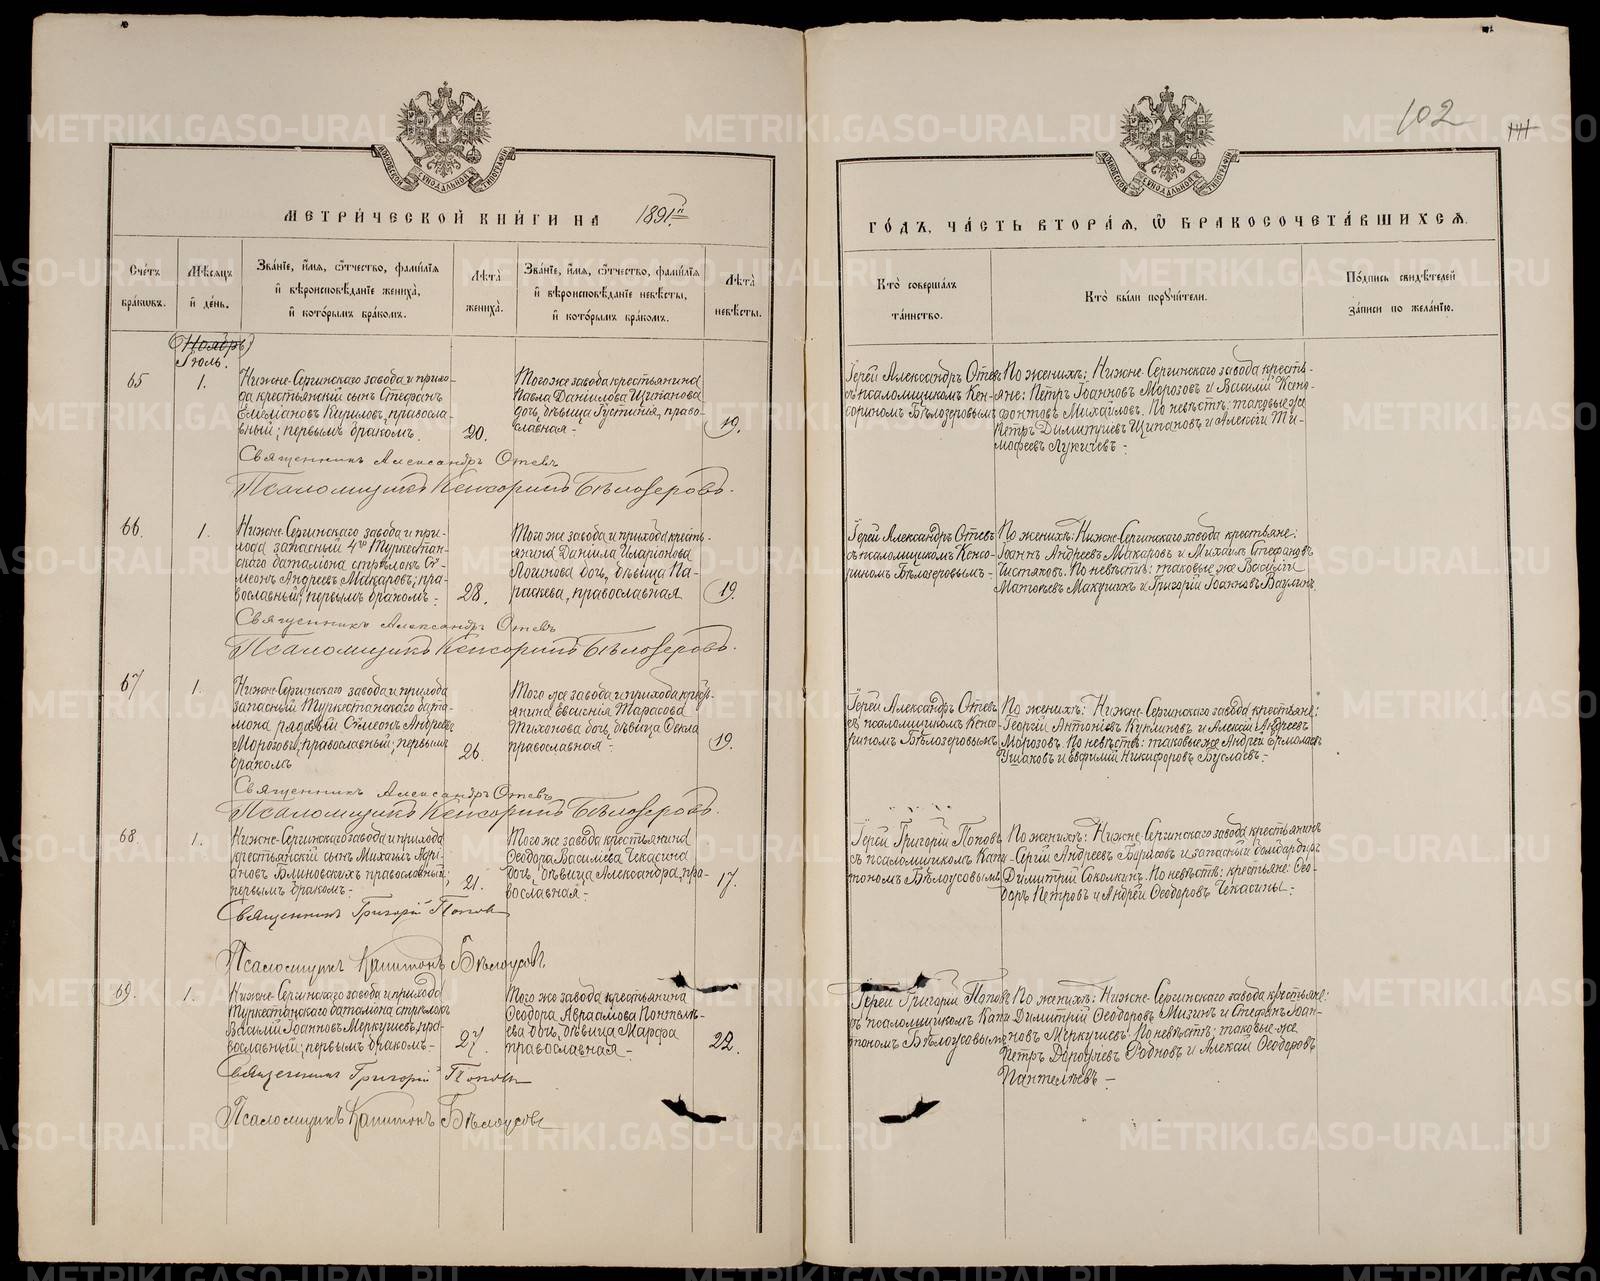 102
МЕТРИ́ЧЕСКОЙ КНИ́ГИ НА 1891й
ГО́ДЪ, ЧА́СТЬ ВТОРА́Я, Ѿ БРАКОСОЧЕТА́ВШИХСЯ.
Сче́тъ бра́кωвъ.
Мѣ́сяцъ и҆ де́нь.
Зва́нїе, и҆́мя, ѻ҆́тчество, фами́лїя и҆ вѣроисповѣ́данїе жениха̀, и҆ кото́рымъ бра́комъ.
Лѣ́та жениха̀.
Зва́нїе, и҆́мя, ѻ҆́тчество, фами́лїя и҆ вѣроисповѣ́данїе невѣ́сты, и҆ кото́рымъ бра́комъ.
Лѣ́та невѣ́сты.
Кто̀ соверша́лъ та́инство.
Кто̀ бы́ли порꙋчи́тели.
По́дпись свидѣ́телей за́писи по жела́нїю.
(Ноябрь)
Іюль.
65
1.
Нижне-Сергинскаго завода и прихо-
да крестьянскій сынъ Стефанъ
Емельяновъ Кириловъ, правосла-
вный; первымъ бракомъ.
20.
Того же завода крестьянина
Павла Данилова Щипанова
дочь, дѣвица Густинія, право-
славная -
19.
Іерей Александръ Отевъ
съ псаломщикомъ Кен-
сориномъ Бѣлозеровымъ
По женихѣ: Нижне-Сергинскаго завода кресть-
яне: Петръ Іоанновъ Морозовъ и Василій Ксено-
фонтовъ Михаиловъ. По невѣстѣ: таковые же
Петръ Димитріевъ Щипановъ и Алексій Ти-
мофеевъ Лукичевъ -
Священникъ Александръ Отевъ
Псаломщикъ Кенсоринъ Бѣлозеровъ.
66.
1.
Нижне-Сергинскаго завода и при-
хода запасный 4го Туркестан-
скаго баталіона стрѣлокъ Си-
меонъ Андреевъ Макаровъ; пра-
вославный; первымъ бракомъ -
28.
Того же завода и прихода кресть-
янина Даніила Иларіонова
Логинова дочь, дѣвица Па-
раскева, православная
19.
Іерей Александръ Отевъ
съ псаломщикомъ Кенсо-
риномъ Бѣлозеровымъ -
По женихѣ: Нижне-Сергинскаго завода крестьяне:
Іоаннъ Андреевъ Макаровъ и Михаилъ Стефановъ
Чистяковъ. По невѣстѣ: таковые же Василій
Матѳеевъ Макушинъ и Григорій Іоанновъ Ваулинъ.
Священникъ Александръ Отевъ
Псаломщикъ Кенсоринъ Бѣлозеровъ.
67
1.
Нижне-Сергинскаго завода и прихода
запасный Туркестанскаго бата-
ліона рядовый Симеонъ Андреевъ
Морозовъ, православный; первымъ
бракомъ
26.
Того же завода и прихода кресть-
янина Евгенія Тарасова
Тихонова дочь, дѣвица Ѳекла
православная -
19.
Іерей Александръ Отевъ
съ псаломщикомъ Кенсо-
риномъ Бѣлозеровымъ
По женихѣ: Нижне-Сергинскаго завода крестьяне:
Георгій Антоніевъ Куклиновъ и Алексій Андреевъ
Морозовъ. По невѣстѣ: таковые же Андрей Ермолаевъ
Ушаковъ и Евфимій Никифоровъ Буслаевъ. -
Священникъ Александръ Отевъ
Псаломщикъ Кенсоринъ Бѣлозеровъ.
68
1.
Нижне-Сергинскаго завода и прихода
крестьянскій сынъ Михаилъ Мари-
ановъ Блиновскихъ православный;
первымъ бракомъ -
21.
Того же завода крестьянина
Ѳеодора Василіева Чекасина
дочь, дѣвица Александра, пра-
вославная -
17.
Іерей Григорій Поповъ
съ псаломщикомъ Капи-
тономъ Бѣлоусовымъ
По женихѣ: Нижне-Сергинскаго завода крестьянинъ
Сергій Андреевъ Борисовъ и запасный бомбардиръ
Димитрій Соколкинъ. По невѣстѣ: крестьяне: Ѳео-
доръ Петровъ и Андрей Ѳеодоровъ Чекасины -
Священникъ Григорій Поповъ
Псаломщикъ Капитонъ Бѣлоусовъ.
69.
1.
Нижне-Сергинскаго завода и прихода
Туркестанскаго баталіона стрѣлокъ
Василій Іоанновъ Меркушевъ, пра-
вославный; первымъ бракомъ -
27.
Того же завода крестьянина
Ѳеодора Авраамова Пантелѣ-
ева дочь, дѣвица Марфа
православная -
22.
Іерей Григорій Поповъ
съ псаломщикомъ Капи-
тономъ Бѣлоусовымъ
По женихѣ: Нижне-Сергинскаго завода крестьяне:
Димитрій Ѳеодоровъ Мизинъ и Стефанъ Іоан-
новъ Меркушевъ. По невѣстѣ: таковые же
Петръ Дороѳеевъ Родновъ и Алексій Ѳеодоровъ
Пантелѣевъ -
Священникъ Григорій Поповъ
Псаломщикъ Капитонъ Бѣлоусовъ
METRIKI.GASO-URAL.RU